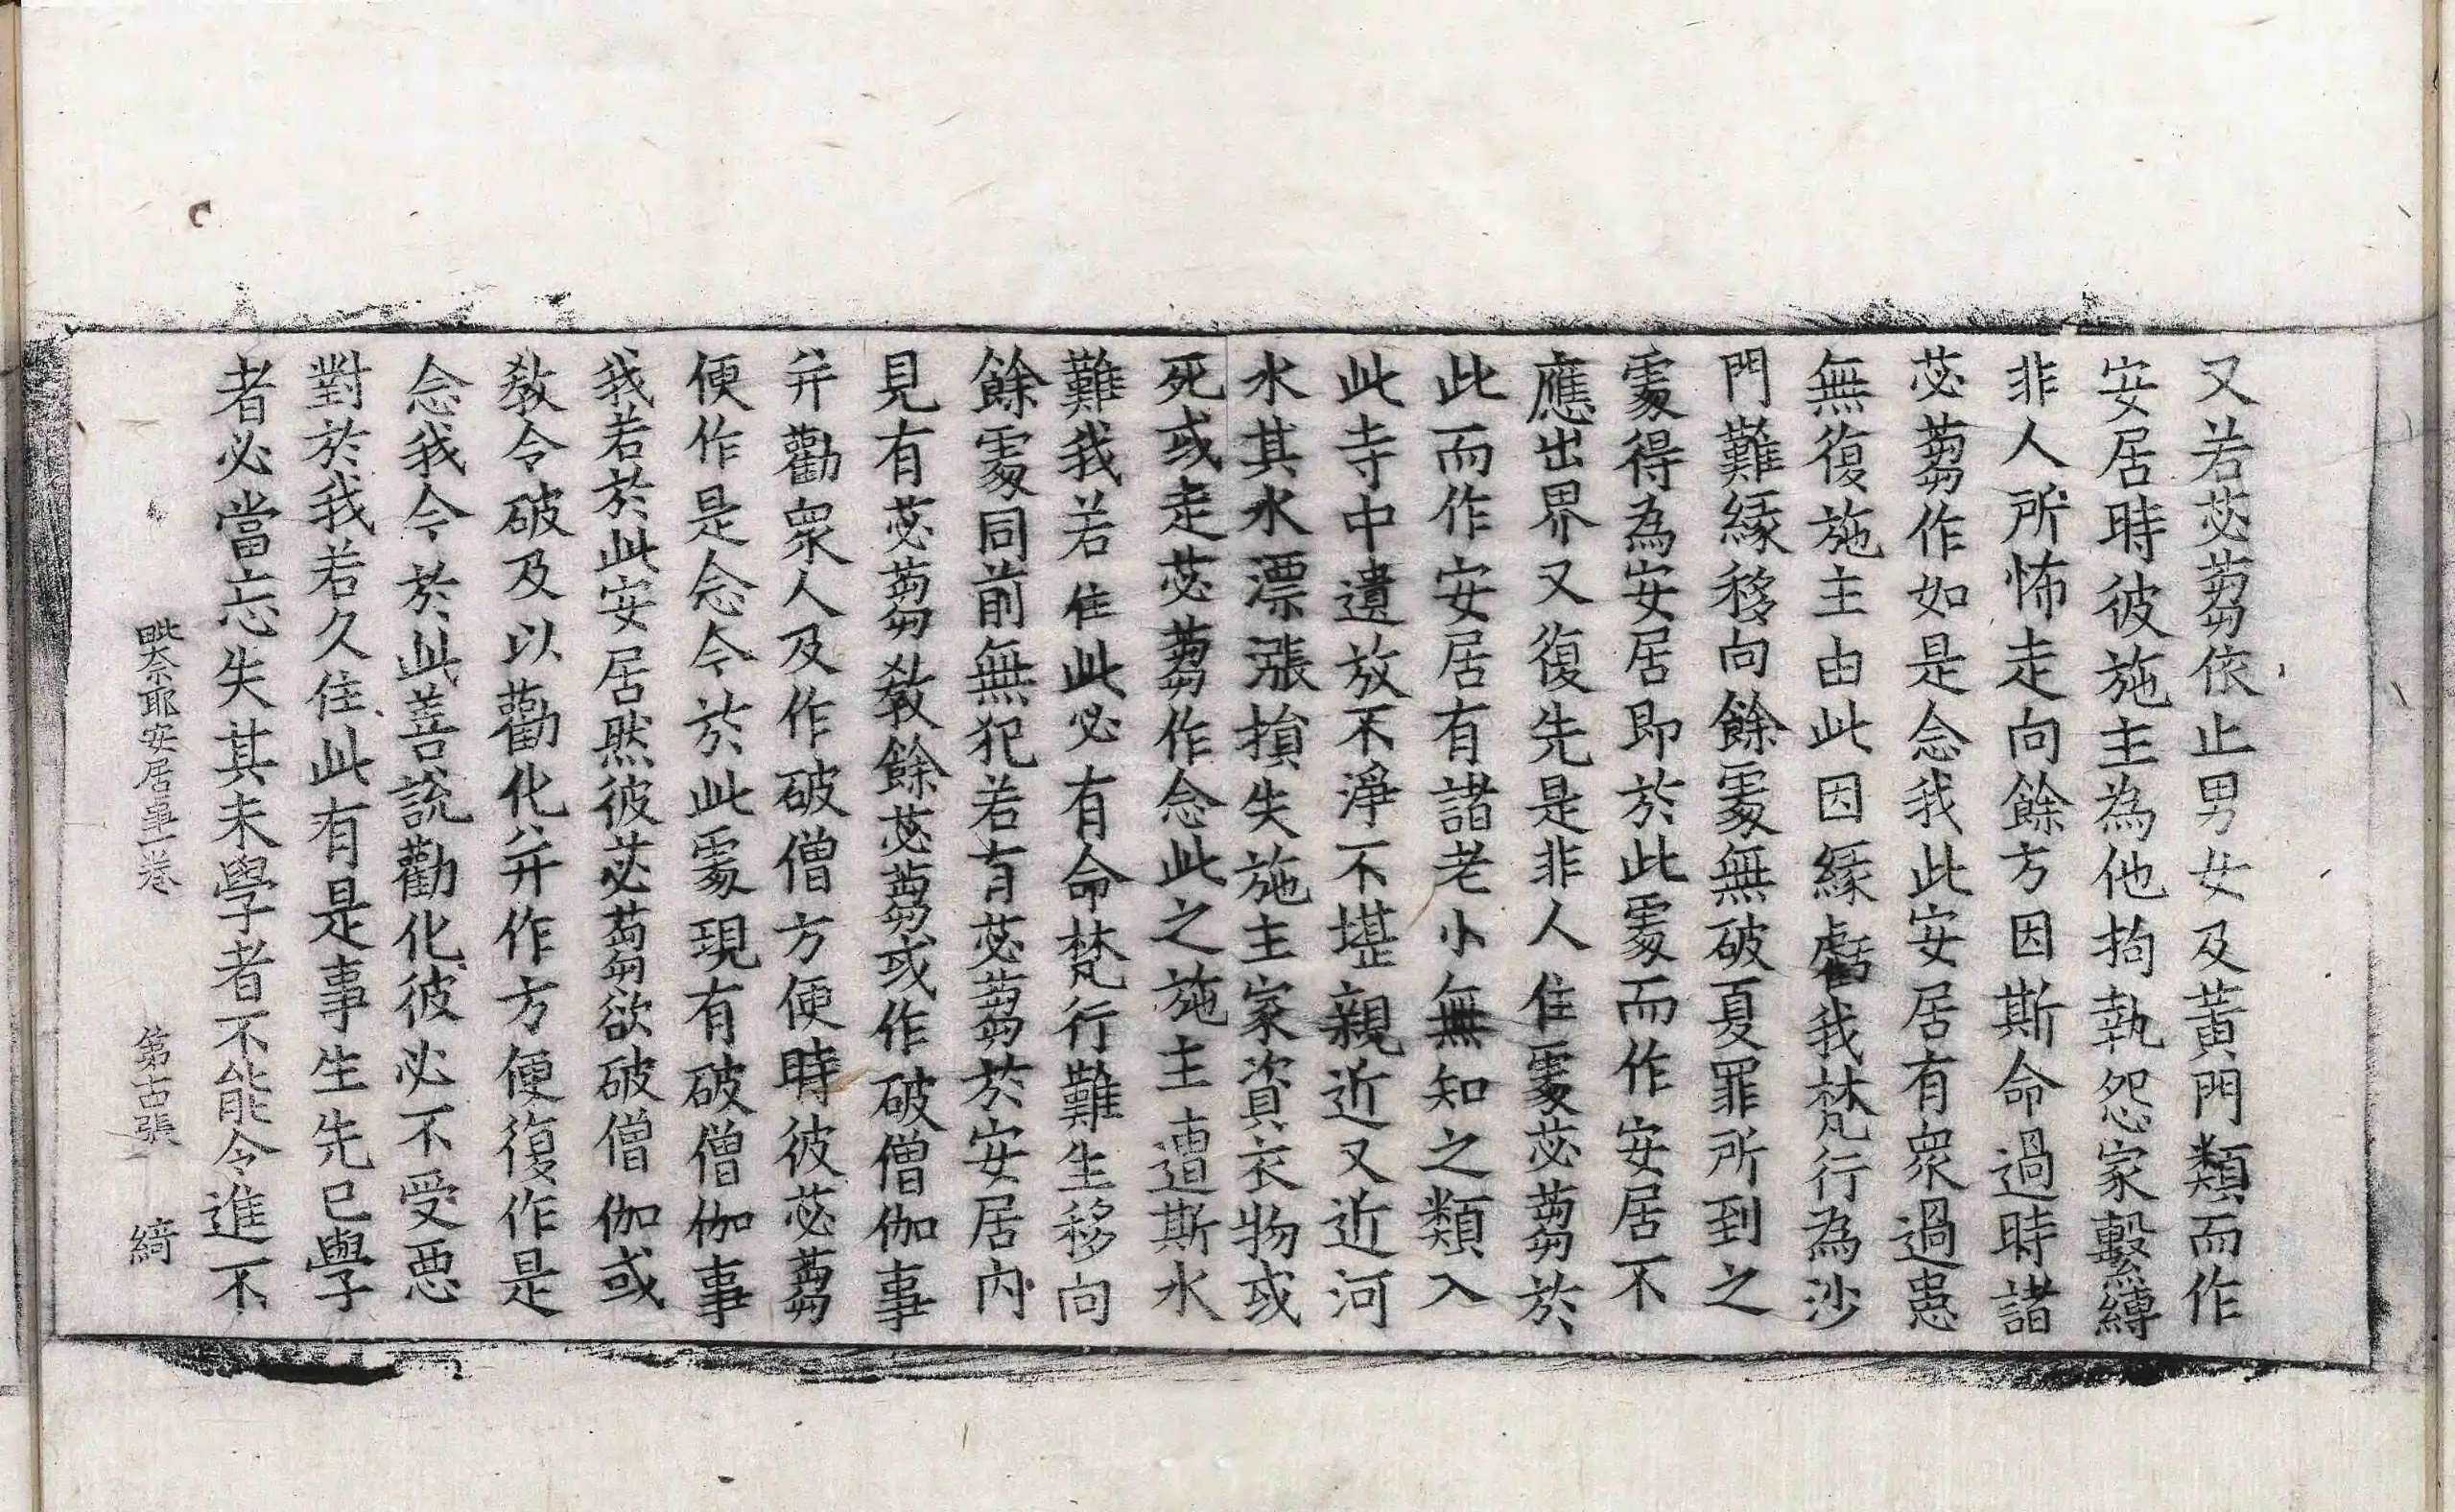 又若苾蒭依止男女及黃門類而作
安居時彼施主為他拘執怨家繫縛
非人所怖走向餘方因斯命過時諸
苾蒭作如是念我此安居有衆過患
無復施主由此因緣虧我梵行為沙
門難緣移向餘處無破夏罪所到之
處得為安居即於此處而作安居不
應出界又復先是非人住處苾蒭於
此而作安居有諸老小無知之類入
此寺中遺放不淨不堪親近又近河
水其水漂漲損失施主家資衣物或
死或走苾蒭作念此之施主遭斯水
難我若住此必有命梵行難生移向
餘處同前無犯若有苾蒭於安居內
見有苾蒭敎餘苾蒭或作破僧伽事
并勸衆人及作破僧方便時彼苾蒭
便作是念今於此處現有破僧伽事
我若於此安居然彼苾蒭欲破僧伽或
敎令破及以勸化并作方便復作是
念我今於此善說勸化彼必不受惡
對於我若久住此有是事生先已學
者必當忘失其未學者不能令進不
毗奈耶安居事一卷 第古張 綺